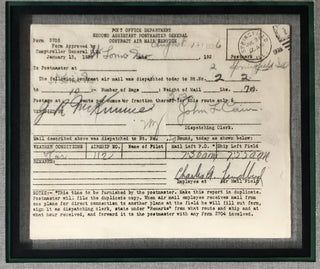 POST OFFICE DEPARTMENT
SECOND ASSISTANT POSTMASTER GENERAL
CONTRACT AIR MAIL SERVICE
Form 2703
Form Approved by
Comptroller General U.S.
January 13, 1926
St Louis
Postmaster at 2 Springfield Ill
The following contract air mail was dispatched today to Rt. No. 2
Number of Bags Weight of Mail lbs. ozs.
pounds or fraction thereof for this route only
Dispatching Clerk.
Mail described above was dispatched Via Rt. No.
WEATHER CONDITIONS Airplane No. Name of Pilot Mail Left P.O. * Mail Left Field *
112 730am 755am
REMARKS:
Charles A. Lindbergh
Employee at Air Mail Field
NOTE:- *This time to be furnished by the postmaster. Make this report in duplicate.
Postmaster will file the duplicate copy. When air mail employee received mail from
one plane for direct connection to another plane at the field he will fill out form,
sign it as dispatching clerk, state under "Remarks" from what route and ship and at
what hour received, and forward it to the postmaster with any Form 2704 involved.